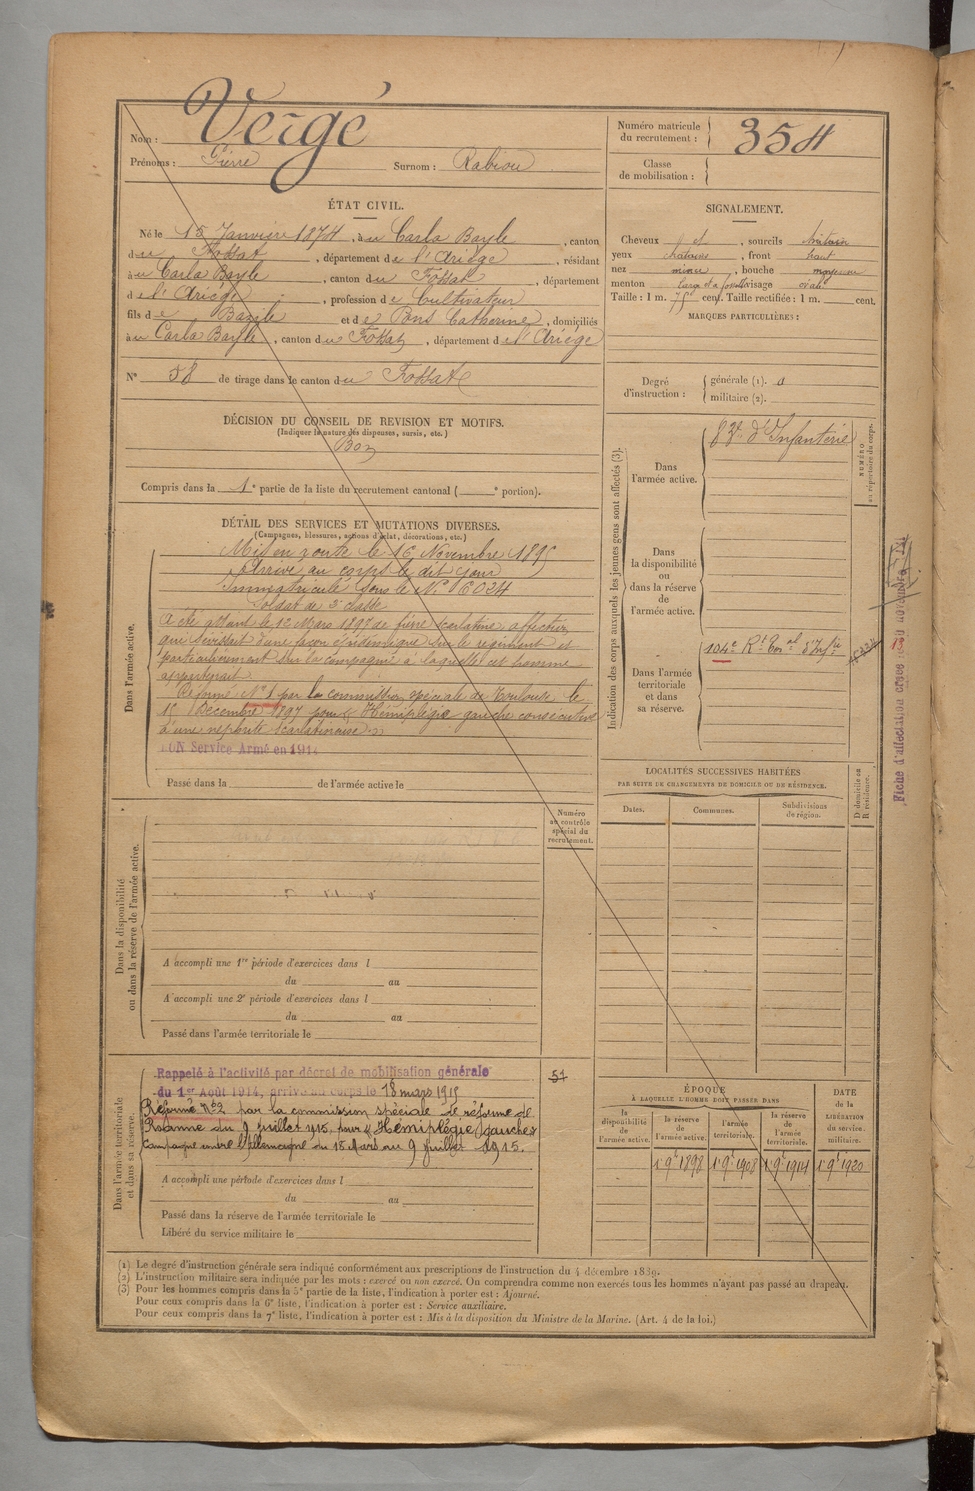 Nom : Vergé
Prénoms : Pierre Surnom : Rabiou
Numéro matricule
du recrutement : 354
Classe
de mobilisation :
ÉTAT CIVIL.
Né le 15 Janvier 1874, à u Carla Bayle, canton
du Fossat, département de l'Ariège, résidant
à u Carla Bayle, canton du Fossat, département
de l'Ariège, profession de Cultivateur
fils de Bazile et de Pons Catherine, domiciliés
à u Carla Bayle, canton du Fossat, département de l'Ariège
N° 58 de tirage dans le canton du Fossat
SIGNALEMENT.
Cheveux et, sourcils châtain
yeux châtains, front haut
nez mince, bouche moyenne
menton large et à fossette visage ovale
Taille : 1 m. 75 cent. Taille rectifiée : 1 m. cent.
MARQUES PARTICULIÈRES :
Degré
d'instruction :
générale (1).
militaire (2).
DÉCISION DU CONSEIL DE REVISION ET MOTIFS.
(Indiquer la nature des dispenses, sursis, etc.)
Bon
Compris dans la 1e partie de la liste du recrutement cantonal ( e portion).
DÉTAIL DES SERVICES ET MUTATIONS DIVERSES.
(Campagnes, blessures, actions d'éclat, décorations, etc.)
Dans l'armée active.
Mis en route le 16 Novembre 1895
Arrivé au corps le dit jour
Immatriculé sous le N° 16024
Soldat de 2e classe
A été atteint le 12 Mars 1897 de fièvre scarlatine affection
qui sévissait d'une façon épidémique sur le régiment et
particulièrement sur la compagnie à laquelle cet homme
appartenait
Réformé N° 1 par la commission spéciale de Toulouse le
Décembre 1897 pour "Hémiplégie gauche consécutive
à une néphrite scarlatineuse."
BON Service Armé en 1914
Passé dans la de l'armée active le
Indication des corps auxquels les jeunes gens sont affectés (3).
Dans
l'armée active.
83e d'Infanterie
NUMÉRO
au répertoire du corps.
Dans
la disponibilité
ou
dans la réserve
de
l'armée active.
Dans l'armée
territoriale
et dans
sa réserve.
104e Rt Tor al d'Infrie
Fiche d'affectation créée le novembre
LOCALITÉS SUCCESSIVES HABITÉES
PAR SUITE DE CHANGEMENTS DE DOMICILE OU DE RÉSIDENCE.
Dates. Communes. Subdivisions
de région.
D domicile ou
R résidence.
Dans la disponibilité
ou dans la réserve de l'armée active.
Numéro
au contrôle
spécial du
recrutement.
A accompli une 1re période d'exercices dans l
du au
A accompli une 2e période d'exercices dans l
du au
Passé dans l'armée territoriale le
Dans l'armée territoriale
et dans sa réserve.
Rappelé à l'activité par décret de mobilisation générale
du 1er Août 1914, arrivé au corps le 18 mars 1915
Réformé N°2 par la commission spéciale de réforme de
Roanne du 9 juillet 1915 pour "Hémiplégie gauche"
Campagne contre l'Allemagne du 18 Mars au 9 juillet 1915.
51
A accompli une période d'exercices dans l
du au
Passé dans la réserve de l'armée territoriale le
Libéré du service militaire le
ÉPOQUE
À LAQUELLE L'HOMME DOIT PASSER DANS
la
disponibilité
de
l'armée active.
la réserve
de
l'armée active.
l'armée
territoriale.
la réserve
de
l'armée
territoriale.
DATE
de la
LIBÉRATION
du service
militaire.
1er 9e 1898 1er 9e 1908 1er 9e 1914 1er 9e 1920
(1) Le degré d'instruction générale sera indiqué conformément aux prescriptions de l'instruction du 4 décembre 1889.
(2) L'instruction militaire sera indiquée par les mots : exercé ou non exercé. On comprendra comme non exercés tous les hommes n'ayant pas passé au drapeau.
(3) Pour les hommes compris dans la 5e partie de la liste, l'indication à porter est : Ajourné.
Pour ceux compris dans la 6e liste, l'indication à porter est : Service auxiliaire.
Pour ceux compris dans la 7e liste, l'indication à porter est : Mis à la disposition du Ministre de la Marine. (Art. 4 de la loi.)